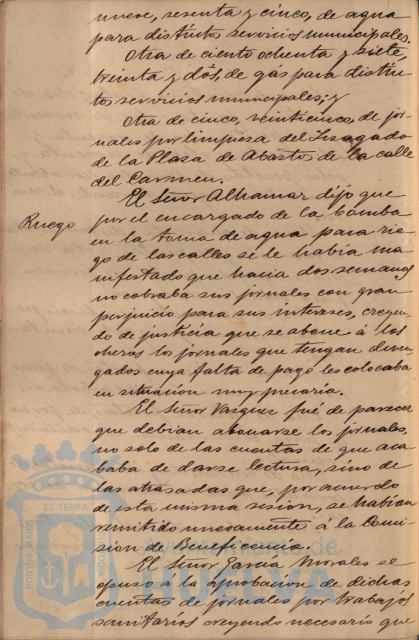 nueve, sesenta y cinco, de agua
para distintos servicios municipales.
Otra de ciento ochenta y siete,
treinta y dós, de gas para distin-
tos servicios municipales; y
Otra de cinco, veinticinco, de jor-
nales por limpieza del
de la Plaza de Abastos de la calle
del Carmen.
Ruego
El Señor Alhamar dijo que
por el encargado de la bomba
en la toma de agua para rie-
go de las calles se le habia ma-
nifestado que hacia dos semanas
no cobraba sus jornales con gran
perjuicio para sus intereses, creyen-
do de justicia que se abone á los
obreros los jornales que tengan deven-
gados cuya falta de pago les colocaba
en situación muy precaria.
El Señor Vazquez fué de parecer
que debian abonarse los jornales,
no solo de las cuentas de que aca-
baba de darse lectura, sino de
las atrasadas que, por acuerdo
de esta misma sesion, se habian
remitido nuevamente á la Comi-
sion de Beneficencia.
El Señor García Morales se
opuso á la aprobacion de dichas
cuentas de jornales por trabajos
sanitarios creyendo necesario que
PORTUS MARIS
ET TERRAE
Ayuntamiento de
HUELVA